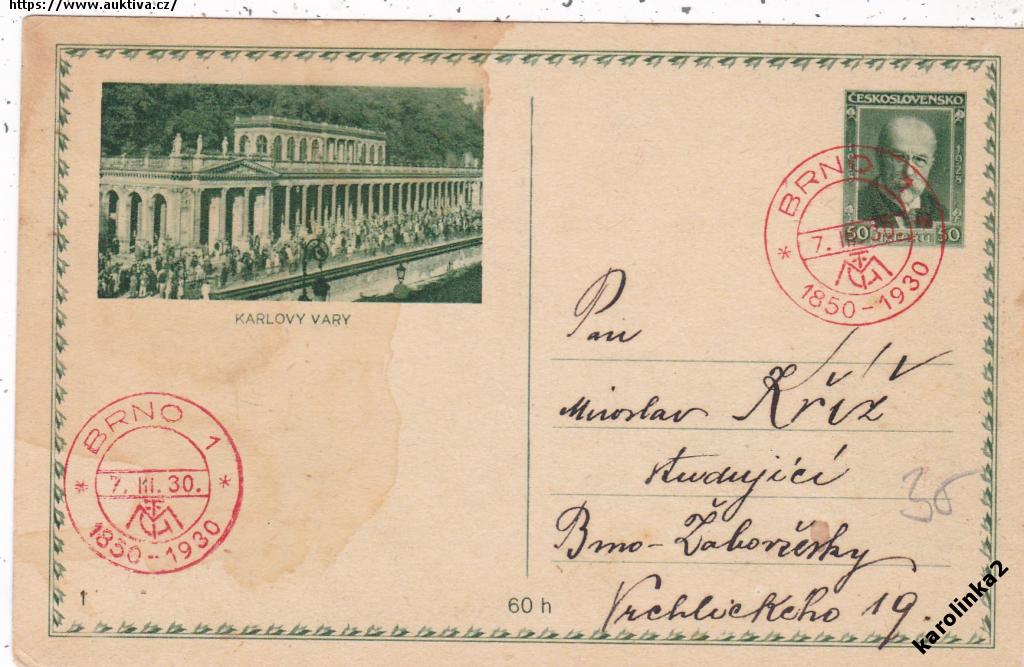 https://www.auktiva.cz/
ČESKOSLOVENSKO
1928
50 50
BRNO 1
7. III. 30.
1850-1930
KARLOVY VARY
Pan
Miroslav Kříž
studující
Brno-Žabovřesky
Vrchlického 19.
BRNO 1
7. III. 30.
1850-1930
1
60 h
karolinka2